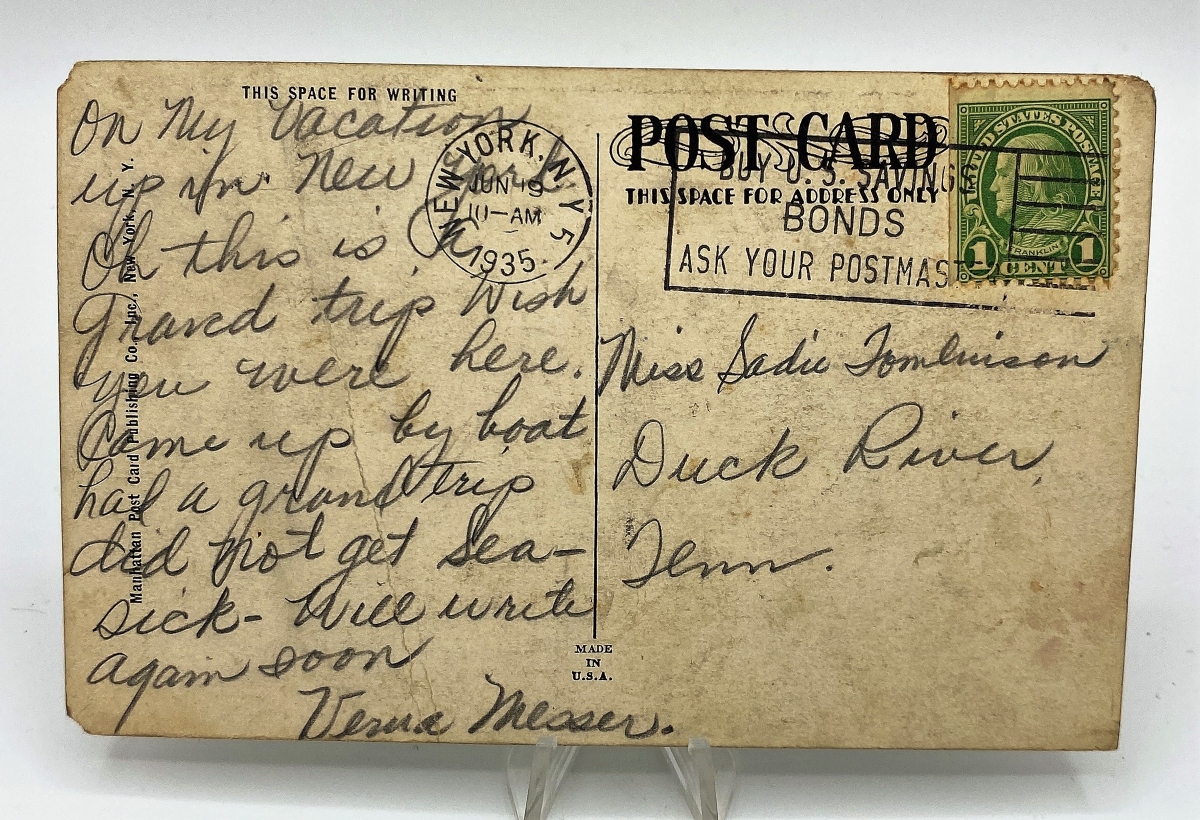 THIS SPACE FOR WRITING
On My Vacation
up in New York
Oh this is a
grand trip Wish
you were here.
Came up by boat
had a grand trip
did not get Sea-
sick- Will write
again soon
Messer.
Manhattan Post Card Publishing Co., Inc., New York, N. Y.
NEW YORK, N.Y. 5
JUN 19
10-AM
1935
POST CARD
THIS SPACE FOR ADDRESS ONLY
BUY U. S. SAVINGS
BONDS
ASK YOUR POSTMAST
UNITED STATES POSTAGE
FRANKLIN
1 CENT 1
Miss Sadie Tomlinson
Duck River,
Tenn.
MADE
IN
U.S.A.